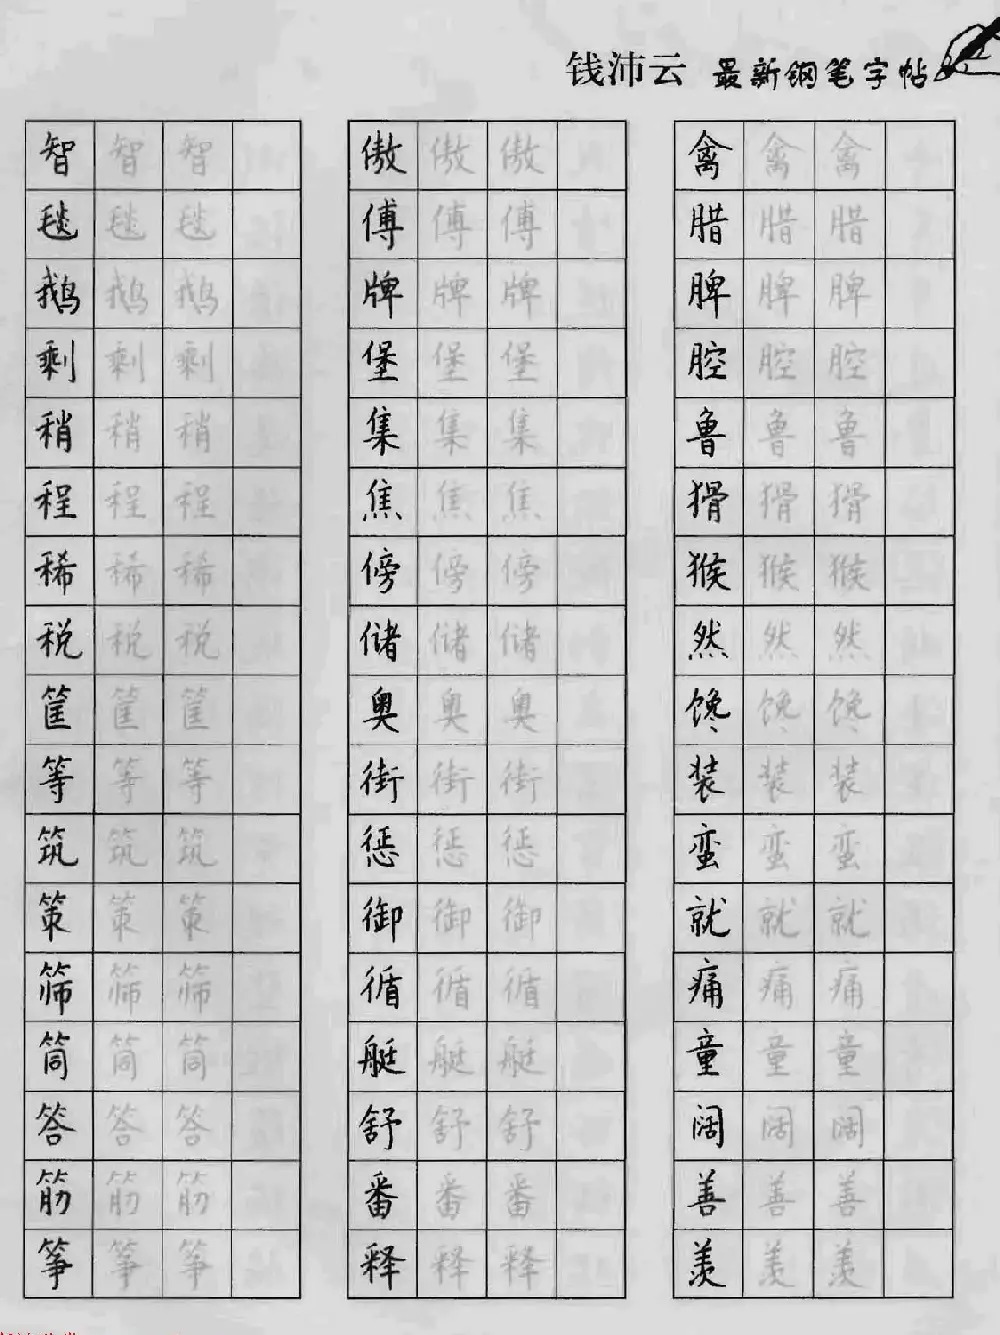 钱沛云 最新钢笔字帖
智 智 智 傲 傲 傲 禽 禽 禽
毯 毯 毯 傅 傅 傅 腊 腊 腊
鹅 鹅 鹅 牌 牌 牌 脾 脾 脾
剩 剩 剩 堡 堡 堡 腔 腔 腔
稍 稍 稍 集 集 集 鲁 鲁 鲁
程 程 程 焦 焦 焦 猾 猾 猾
稀 稀 稀 傍 傍 傍 猴 猴 猴
税 税 税 储 储 储 然 然 然
筐 筐 筐 奥 奥 奥 馋 馋 馋
等 等 等 街 街 街 装 装 装
筑 筑 筑 惩 惩 惩 蛮 蛮 蛮
策 策 策 御 御 御 就 就 就
筛 筛 筛 循 循 循 痛 痛 痛
筒 筒 筒 艇 艇 艇 童 童 童
答 答 答 舒 舒 舒 阔 阔 阔
筋 筋 筋 番 番 番 善 善 善
筝 筝 筝 释 释 释 羡 羡 羡